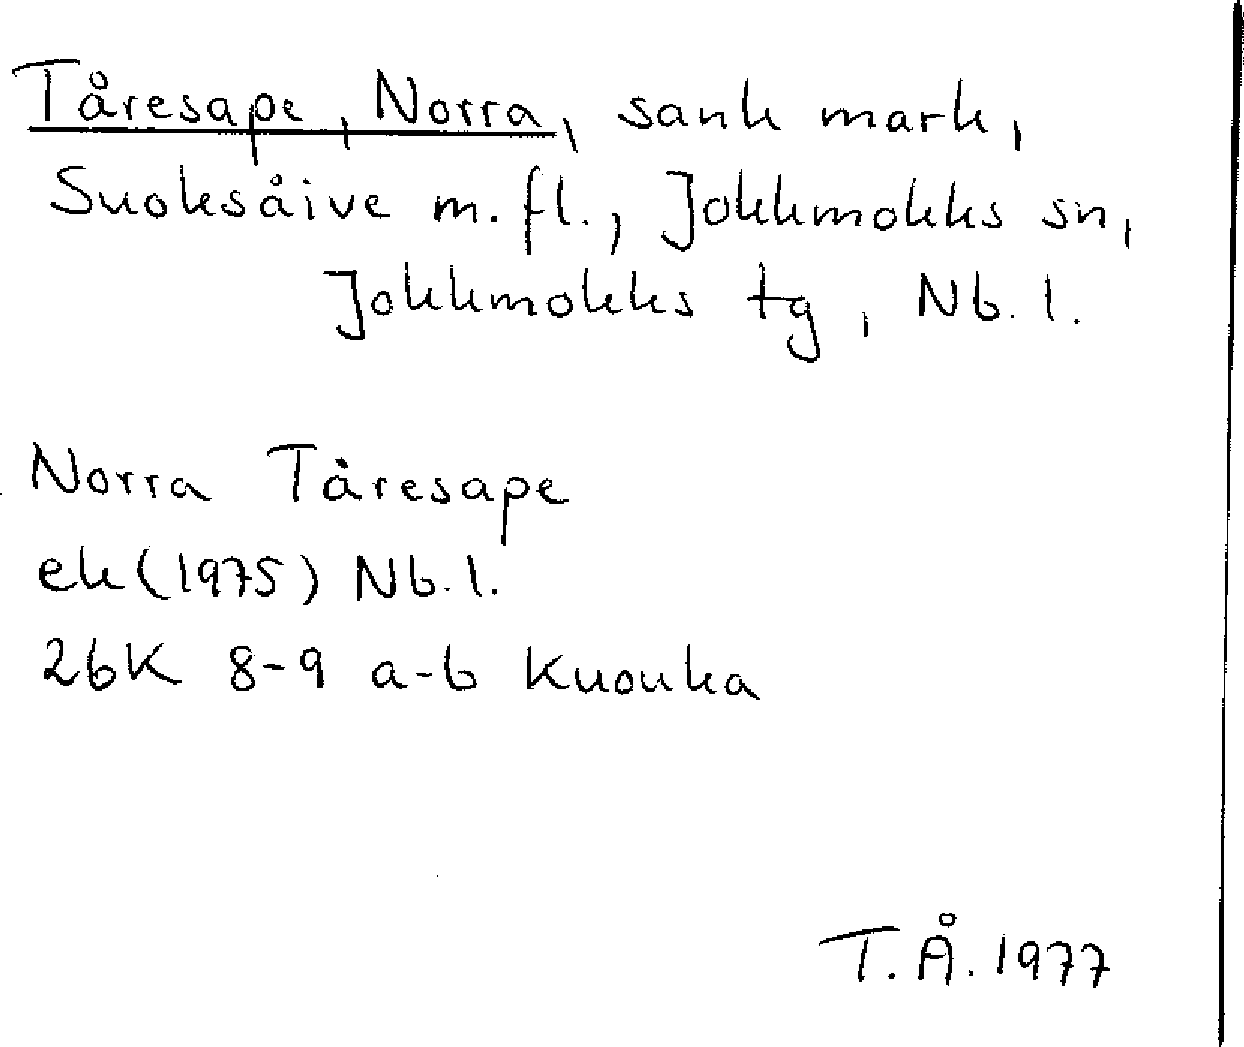 Tåresape, Norra, sank mark,
Suoksåive m.fl., Jokkmokks sn,
Jokkmokks tg, Nb.l.
Norra Tåresape
ek(1975) Nb.l.
26K 8-9 a-b Kuouka
T.Å.1977